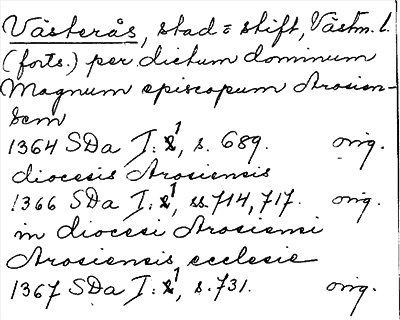 Västerås, stad = stift, Västm. l.
(forts.) per dictum dominum
Magnum episcopum Arosien-
sem
1364 SDa I: 1, s. 689. orig.
diocesis Arosiensis
1366 SDa I: 1, ss. 714, 717. orig.
in diocesi Arosiensi
Arosiensis ecclesie
1367 SDa I: 1, s. 731. orig.